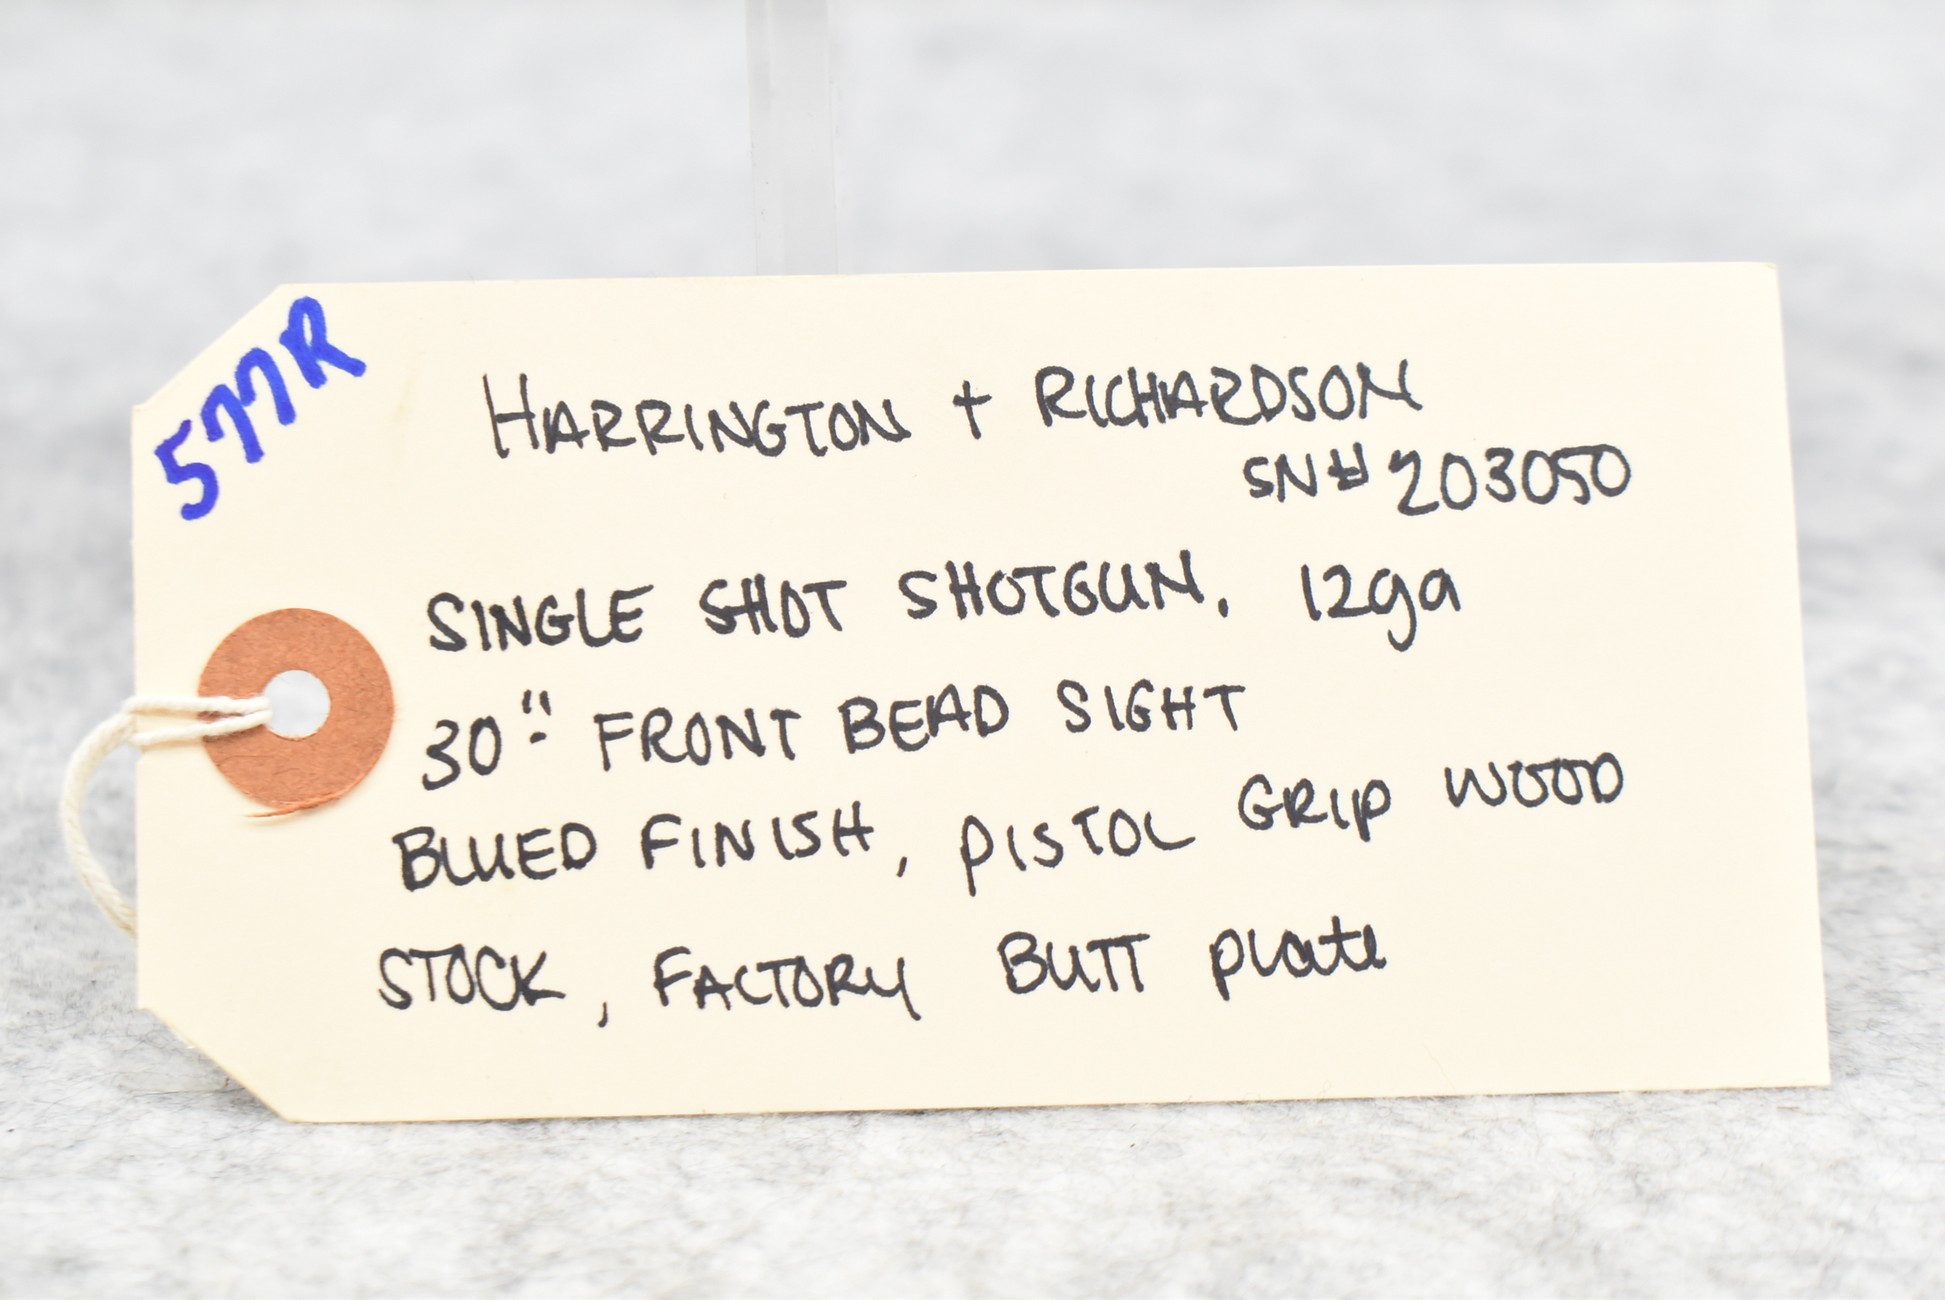 577R
HARRINGTON + RICHARDSON
SN# 203050
SINGLE SHOT SHOTGUN, 12ga
30" FRONT BEAD SIGHT
BLUED FINISH, PISTOL GRIP WOOD
STOCK, FACTORY BUTT plate